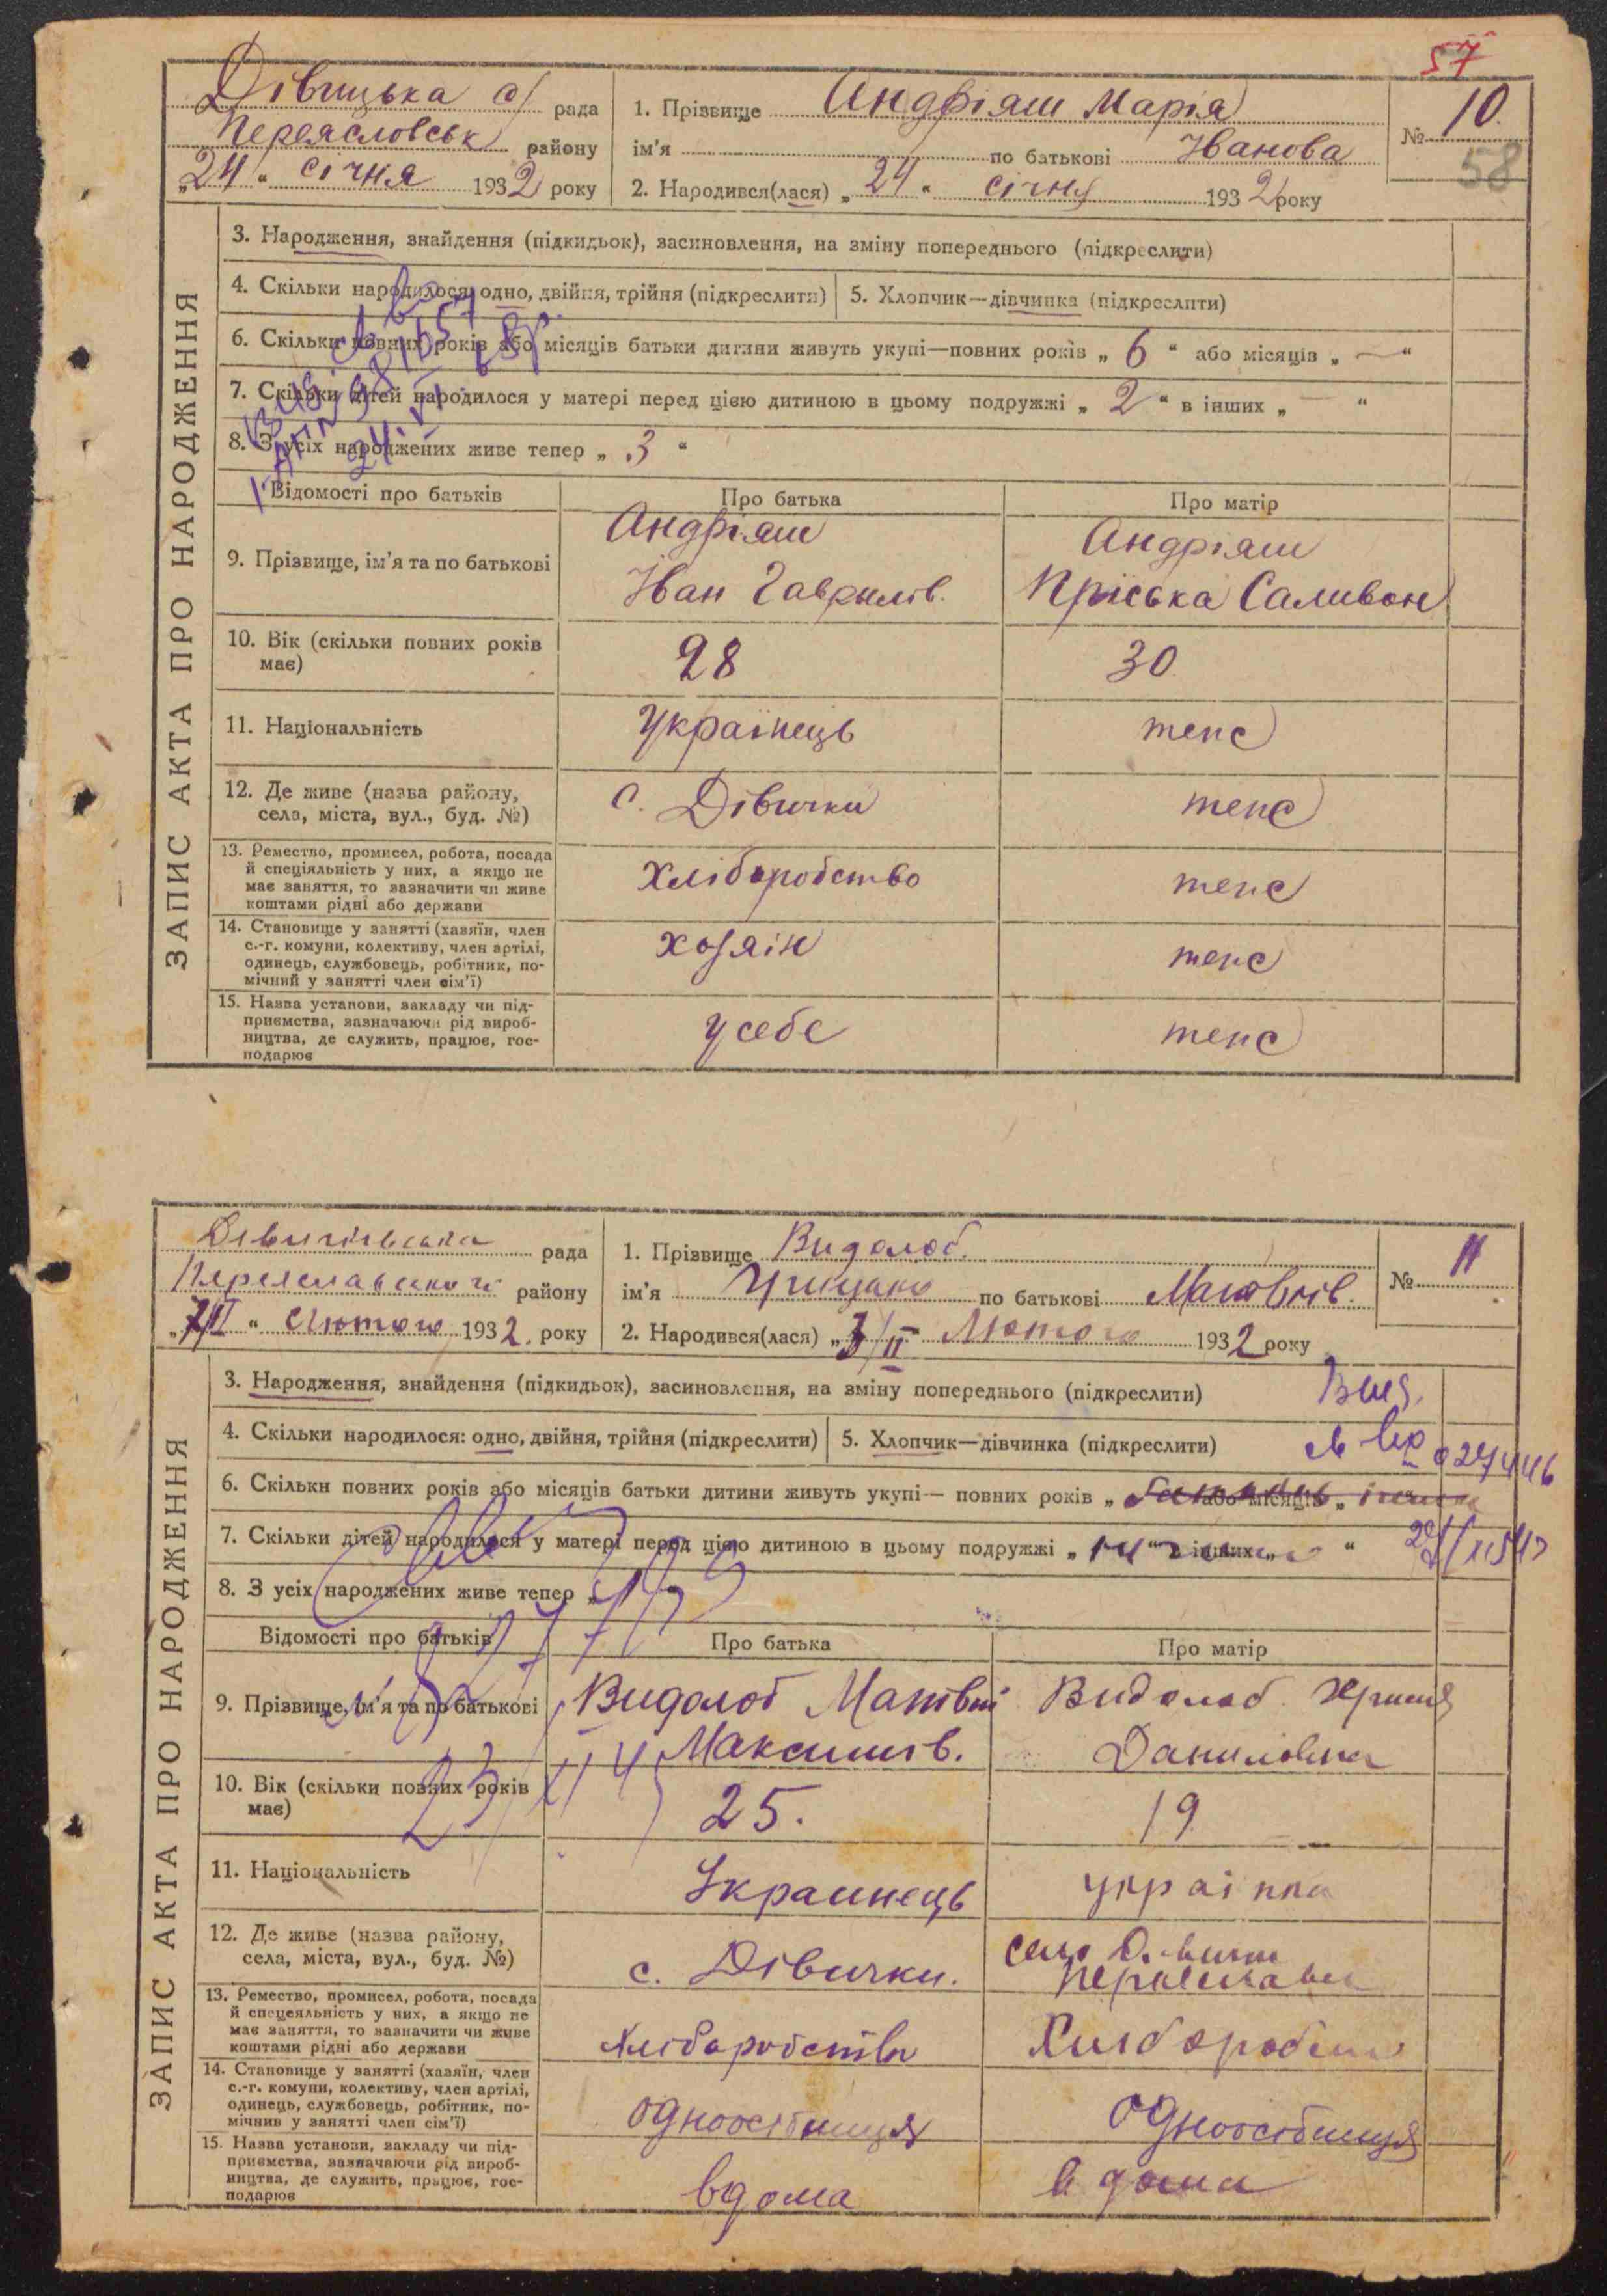 57
Дівицька с/ рада
Переясловськ району
„24“ січня 1932 року
1. Прізвище Андріяш Марія
ім'я по батькові Іванова
2. Народився(лася) „24“ січня 1932 року
№ 10.
58
ЗАПИС АКТА ПРО НАРОДЖЕННЯ
3. Народження, знайдення (підкидьок), засиновлення, на зміну попереднього (підкреслити)
4. Скільки народилося: одно, двійня, трійня (підкреслити)
5. Хлопчик—дівчинка (підкреслити)
6. Скільки повних років або місяців батьки дитини живуть укупі—повних років „6“ або місяців „—“
7. Скільки дітей народилося у матері перед цією дитиною в цьому подружжі „2“ в інших „—“
8. З усіх народжених живе тепер „3“
Відомості про батьків
Про батька
Про матір
9. Прізвище, ім'я та по батькові
Андріяш
Іван Гаврилів.
Андріяш
Пріська Саливон
10. Вік (скільки повних років
має)
28
30
11. Національність
Українець
теж
12. Де живе (назва району,
села, міста, вул., буд. №)
с. Дівички
теж
13. Ремество, промисел, робота, посада
й спеціяльність у них, а якщо не
має заняття, то зазначити чи живе
коштами рідні або держави
Хліборобство
теж
14. Становище у занятті (хазяїн, член
с.-г. комуни, колективу, член артілі,
одинець, службовець, робітник, по-
мічний у занятті член сім'ї)
хозяін
теж
15. Назва установи, закладу чи під-
приємства, зазначаючи рід вироб-
ництва, де служить, працює, гос-
подарює
у себе
теж
рада
Переяславського району
„7/II“ Лютого 1932. року
1. Прізвище Видолоб.
ім'я Грицько по батькові Матвіів.
2. Народився(лася) „3/II Лютого 1932 року
№ 11
ЗАПИС АКТА ПРО НАРОДЖЕННЯ
3. Народження, знайдення (підкидьок), засиновлення, на зміну попереднього (підкреслити)
4. Скільки народилося: одно, двійня, трійня (підкреслити)
5. Хлопчик—дівчинка (підкреслити)
027446
6. Скільки повних років або місяців батьки дитини живуть укупі— повних років „ або місяців „
7. Скільки дітей народилося у матері перед цією дитиною в цьому подружжі „ “ в інших „ “
8. З усіх народжених живе тепер „
Відомості про батьків
Про батька
Про матір
9. Прізвище, ім'я та по батькові
Видолоб Матвій
Максимів.
Видолоб Христя
Даниловна
10. Вік (скільки повних років
має)
25.
19
11. Національність
Украинець
украінка
12. Де живе (назва району,
села, міста, вул., буд. №)
с. Дівички.
село Дівички
13. Ремество, промисел, робота, посада
й спецеяльність у них, а якщо не
має заняття, то зазначити чи живе
коштами рідні або держави
Хлібаробство
14. Становище у занятті (хазяїн, член
с.-г. комуни, колективу, член артілі,
одинець, службовець, робітник, по-
мічнив у занятті член сім'ї)
одноосібниця
одноосібниця
15. Назва установи, закладу чи під-
приємства, зазначаючи рід вироб-
ництва, де служить, працює, гос-
подарює
вдома
в дома